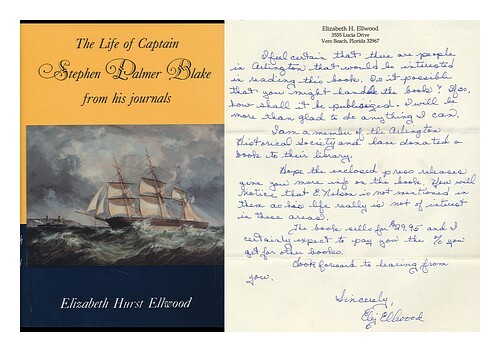 The Life of Captain
Stephen Palmer Blake
from his journals
Elizabeth Hurst Ellwood
Elizabeth H. Ellwood
3555 Lucia Drive
Vero Beach, Florida 32967
I feel certain that there are people
in Arlington that would be interested
in reading this book. Is it possible
that you might handle the book? If so,
how shall it be publicized. I will be
more than glad to do anything I can.
I am a member of the Arlington
Historical Society and have donated a
book to their library.
Hope the enclosed press releases
give you more info on the book. You will
notice that E. Nelson is not mentioned in
them as his life really is not of interest
in those areas.
The book sells for $29.95 and I
certainly expect to pay you the % you
get for other books.
Look forward to hearing from
you.
Sincerely,
Ellwood